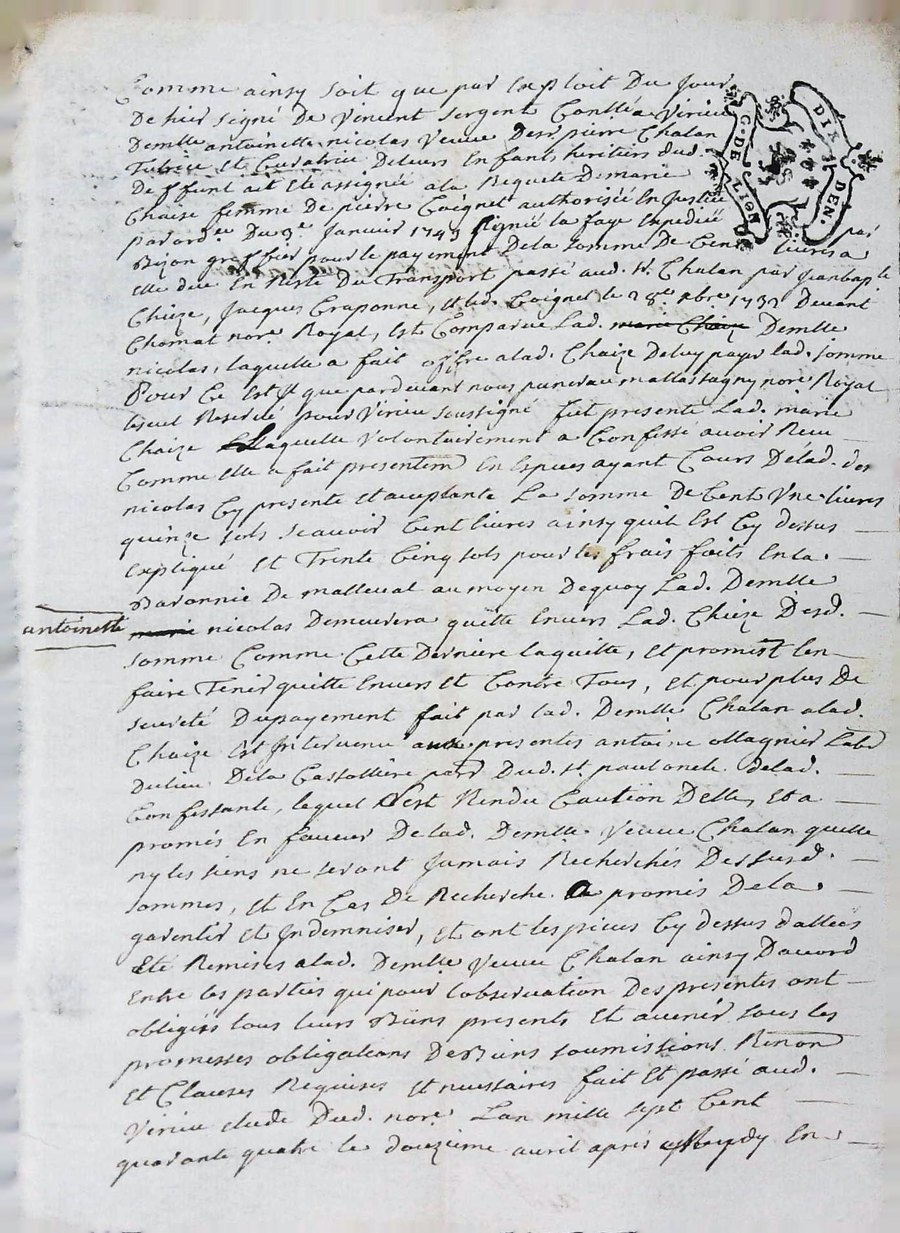 Comme ainsy soit que par Exploit Du Jour
De hier signé De Vincent sergent a Virieu
Demlle antoinette nicolas Veuve De sr pierre Chalan
Tutrice Et Curatrice De leurs Enfants heritiers dud.
Deffunt ait Ete assignée a la Requete De marie
Chaize femme De pierre Coignet authorisée En Justice
par ord.ce Du 9e Janvier 1743 signé la faye Expedié par
Bizon greffier pour le payement De la somme De Cent livres a
Elle due En Reste Du Transport passé aud. sr. Chalan par
Chieze, Jacques Craponne, Et led. Coignet le 28e. Devant
Chomat nore. Royal, Est Comparue Lad. marie Chaize Demlle
nicolas, laquelle a fait offre a lad. Chaize De luy payer lad. somme
Pour Ce Est Il que pardevant nous nore Royal
Reservé pour Virieu soussigné fut presente Lad. marie
Chaize Laquelle volontairement a Confessé avoir Reçu
Comme Elle a fait presentemt En Especes ayant Cours De lad. der
nicolas Cy presente Et acceptante La somme De Cent Une livres
quinze sols sçavoir Cent livres ainsy quil Est Cy dessus
Expliqué Et Trente Cinq sols pour les frais faits En la
Baronnie De malleval au moyen Dequoy Lad. Demlle
antoinette
marie nicolas Demeurera quitte Envers Lad. Chieze Desd.
somme Comme Cette Derniere laquitte, Et promist len
faire Tenir quitte Envers Et Contre Tous, Et pour plus De
seureté Du payement fait par lad. Demlle. Chalan a lad.
Chaize Est Intervenu aux presentes antoine Magnier Labr
Du lieu De la parr Dud. st. paul oncle de lad.
Confessante, lequel sest Rendu Caution Delle, Et a
promis En faveur De lad. Demlle. Veuve Chalan quelle
ny les siens ne seront Jamais Recherchés Des susd.
sommes, Et En Cas De Recherche a promis De la
garentir Et Indemniser, Et ont les pieces Cy dessus
Eté Remises a lad. Demlle Veuve Chalan ainsy Daccord
Entre les parties qui pour lobservation Des presentes ont
obligés tous leurs Biens presents Et avenir sous les
promesses obligations De Biens soumissions Renon
Et Clauses Requises Et necessaires fait Et passé aud.
Virieu Etude Dud. nore. Lan mille sept Cent
quarante quatre le douzieme avril apres Mydy En
G. DE LION
DIX DEN.